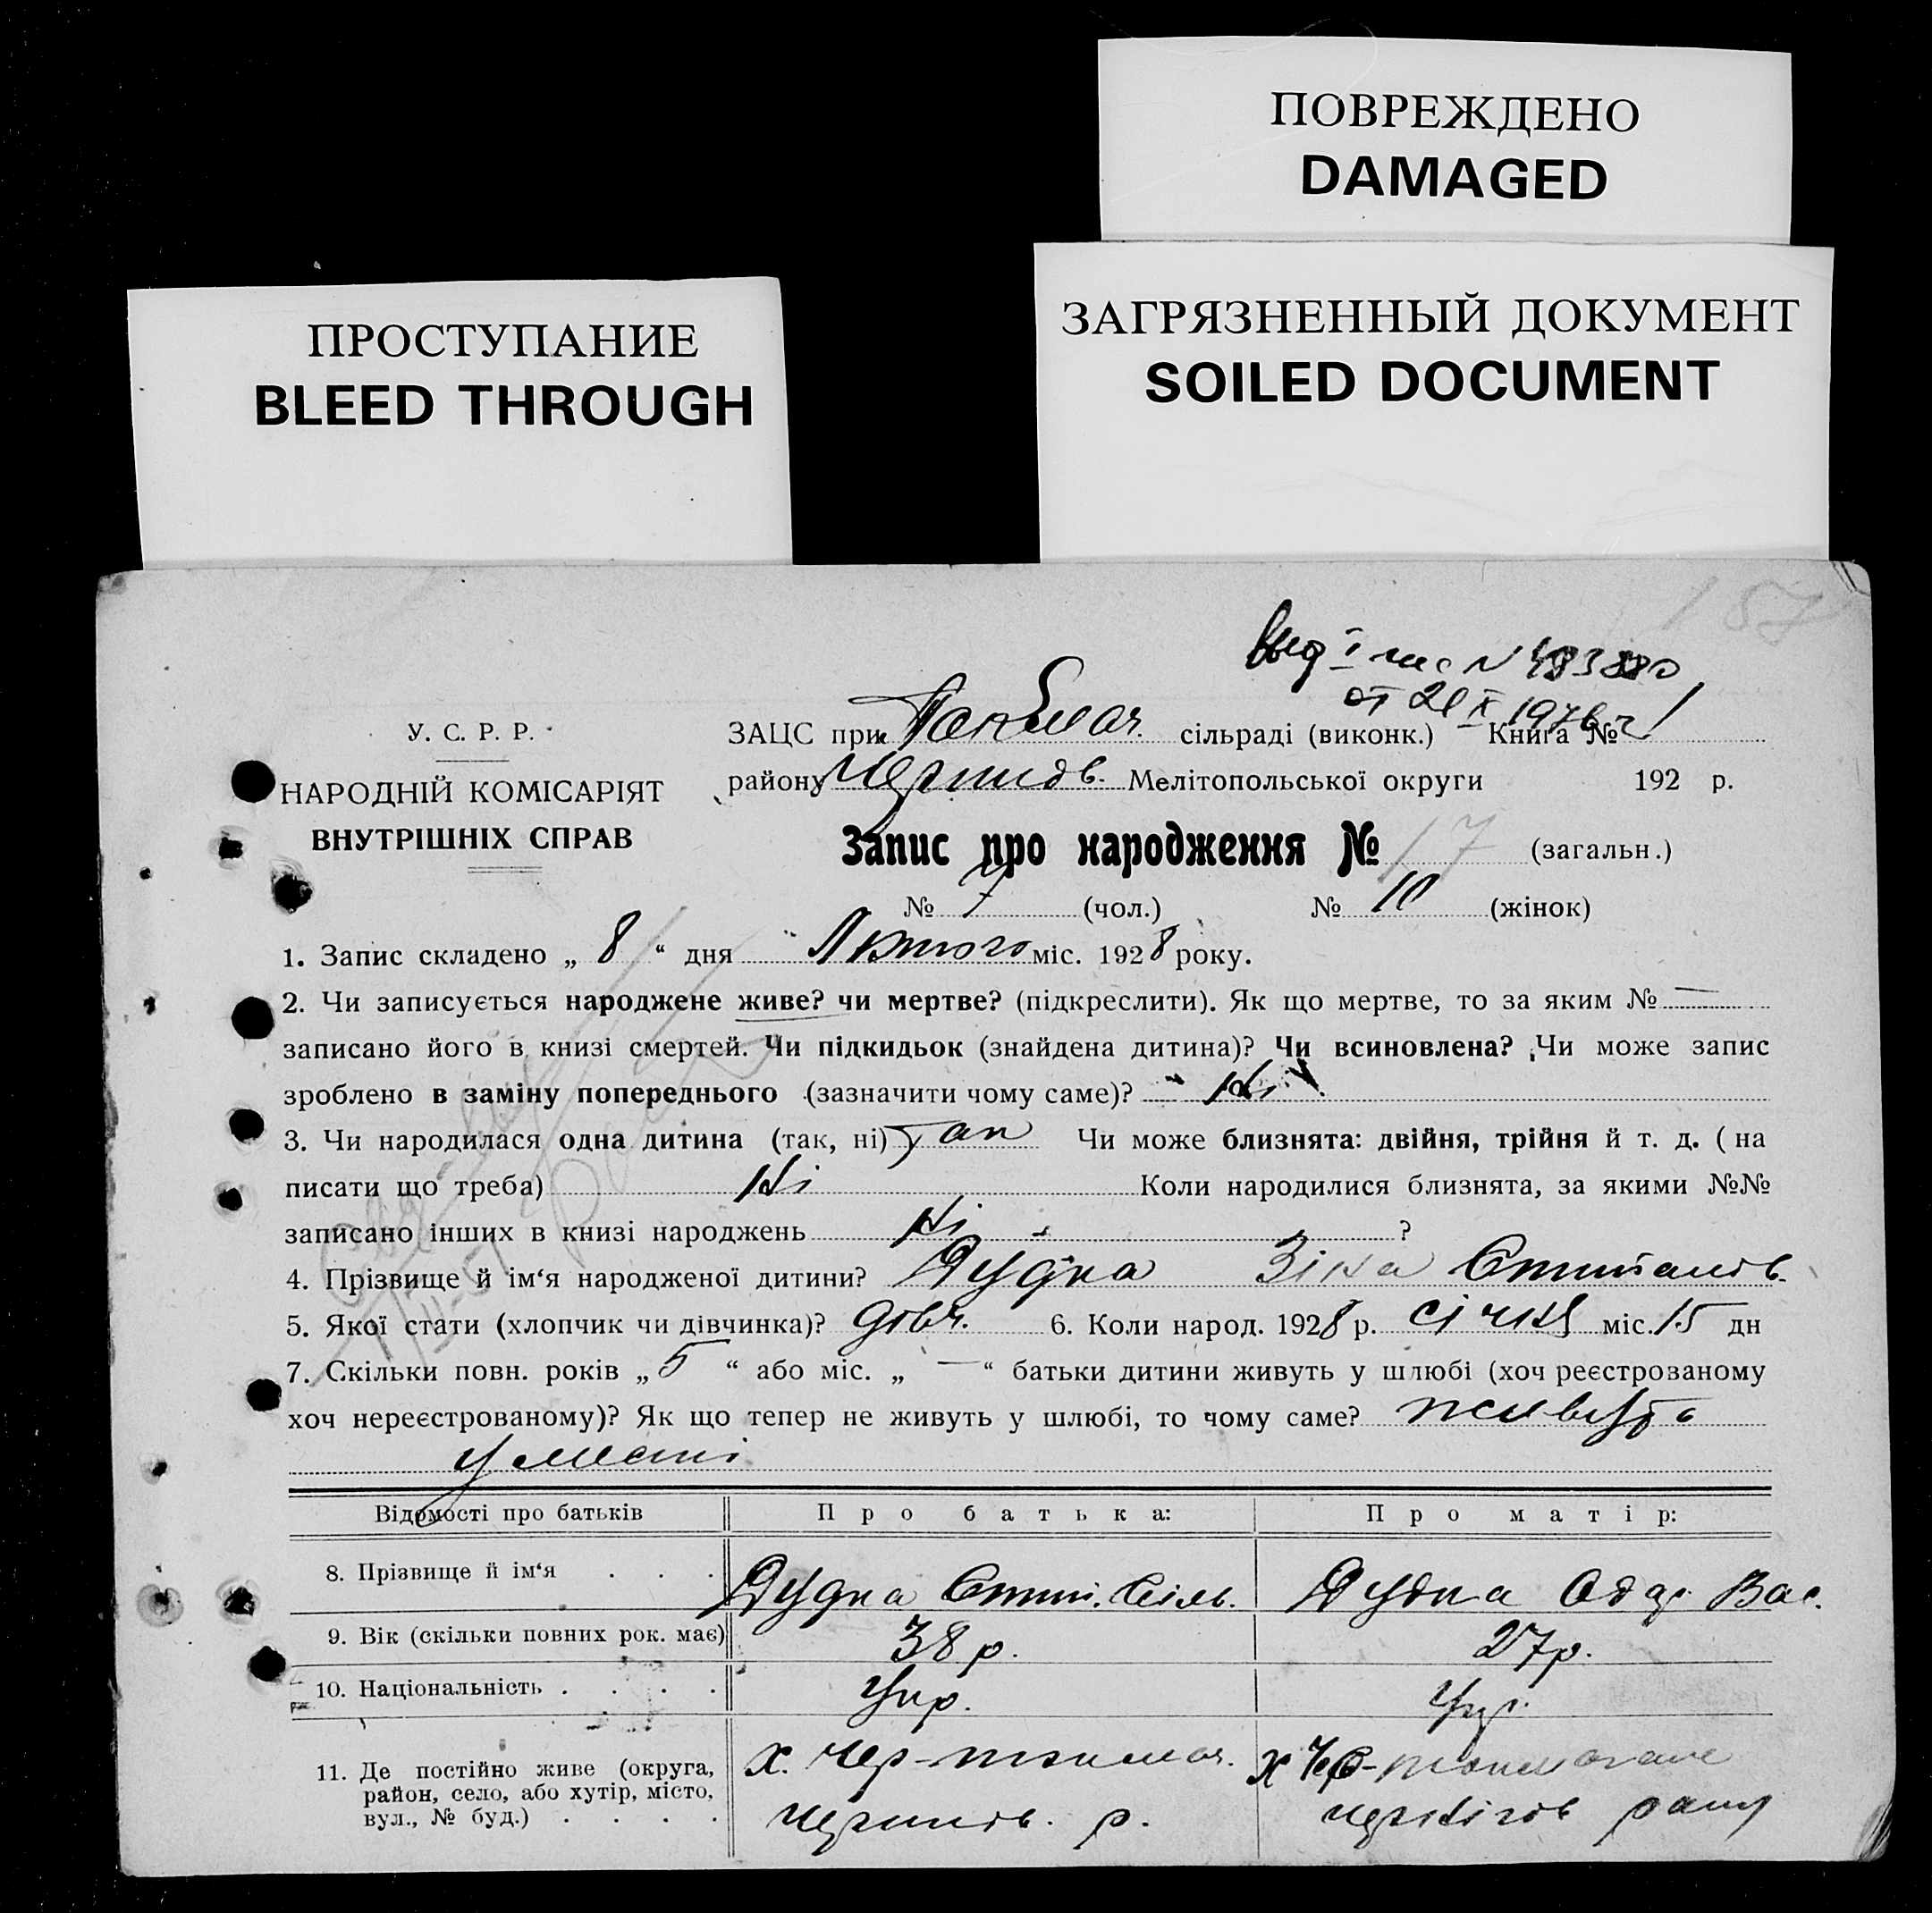 ПОВРЕЖДЕНО
DAMAGED
ПРОСТУПАНИЕ
BLEED THROUGH
ЗАГРЯЗНЕННЫЙ ДОКУМЕНТ
SOILED DOCUMENT
157
от 21 X 1976 г
У. С. Р. Р.
НАРОДНІЙ КОМІСАРІЯТ
ВНУТРІШНІХ СПРАВ
ЗАЦС при Токмач. сільраді (виконк.) Книга №
району Черниговв. Мелітопольської округи 192 р.
Запис про народження № 17 (загальн.)
№ 7 (чол.) № 10 (жінок)
1. Запис складено „ 8 “ дня Лютого міс. 1928 року.
2. Чи записується народжене живе? чи мертве? (підкреслити). Як що мертве, то за яким № —
записано його в книзі смертей. Чи підкидьок (знайдена дитина)? Чи всиновлена? Чи може запис
зроблено в заміну попереднього (зазначити чому саме)? Ні
3. Чи народилася одна дитина (так, ні) так Чи може близнята: двійня, трійня й т. д. (на
писати що треба) Ні Коли народилися близнята, за якими №№
записано інших в книзі народжень Ні ?
4. Прізвище й ім‘я народженої дитини? Дудка Зіна
5. Якої стати (хлопчик чи дівчинка)? дівч. 6. Коли народ. 1928 р. січня міс. 15 дн
7. Скільки повн. років „ 5 “ або міс. „ — “ батьки дитини живуть у шлюбі (хоч реєстрованому
хоч нереєстрованому)? Як що тепер не живуть у шлюбі, то чому саме? живуть
у месті
Відомості про батьків Про батька: Про матір:
8. Прізвище й ім‘я . . . Дудка Дудка Вас.
9. Вік (скільки повних рок. має) 38 р. 27 р.
10. Національність . . . . Укр. Укр.
11. Де постійно живе (округа,
район, село, або хутір, місто,
вул., № буд.) . . . .
х. Чер-токмач.
р.
х Чер-
Чернігов